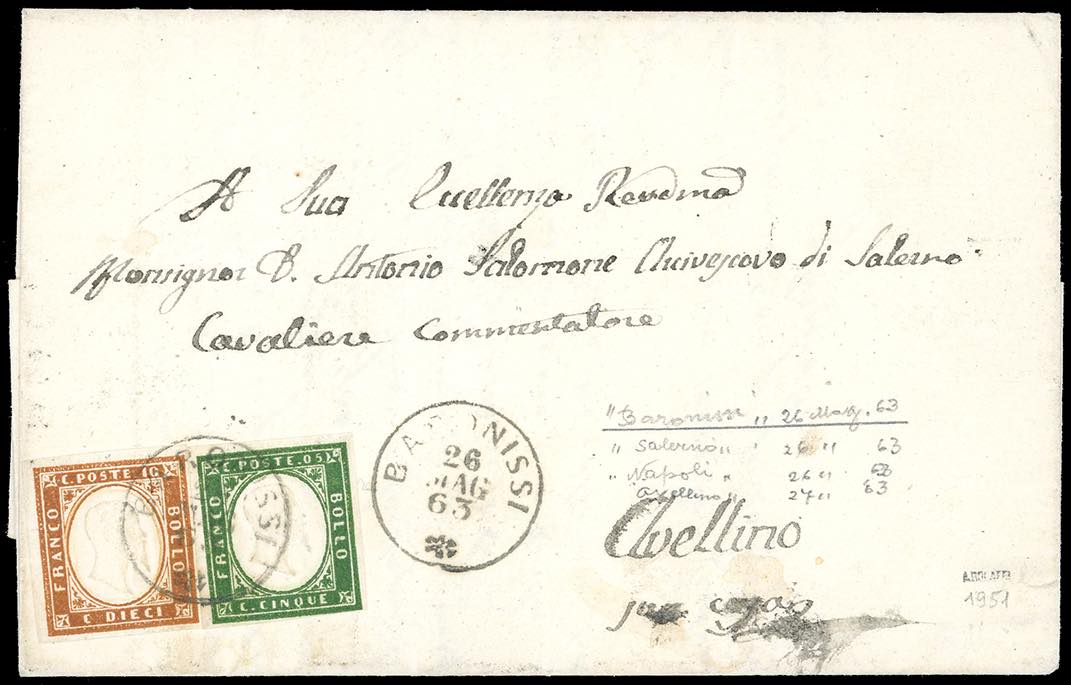 A Sua Eccellenza Revdma
Monsignor D. Antonio Salomone Arcivescovo di Salerno
Cavaliere Commentatore
BARONISSI
26
MAG
63
"Baronissi" 26 Magg. 63
" Salerno " " 26 " 63
" Napoli " 26 " 63
Avellino " 27 " 63
Avellino
per
A. BOLAFFI
1951
C. POSTE 10
FRANCO
BOLLO
C DIECI
C. POSTE 05
FRANCO
BOLLO
C. CINQUE